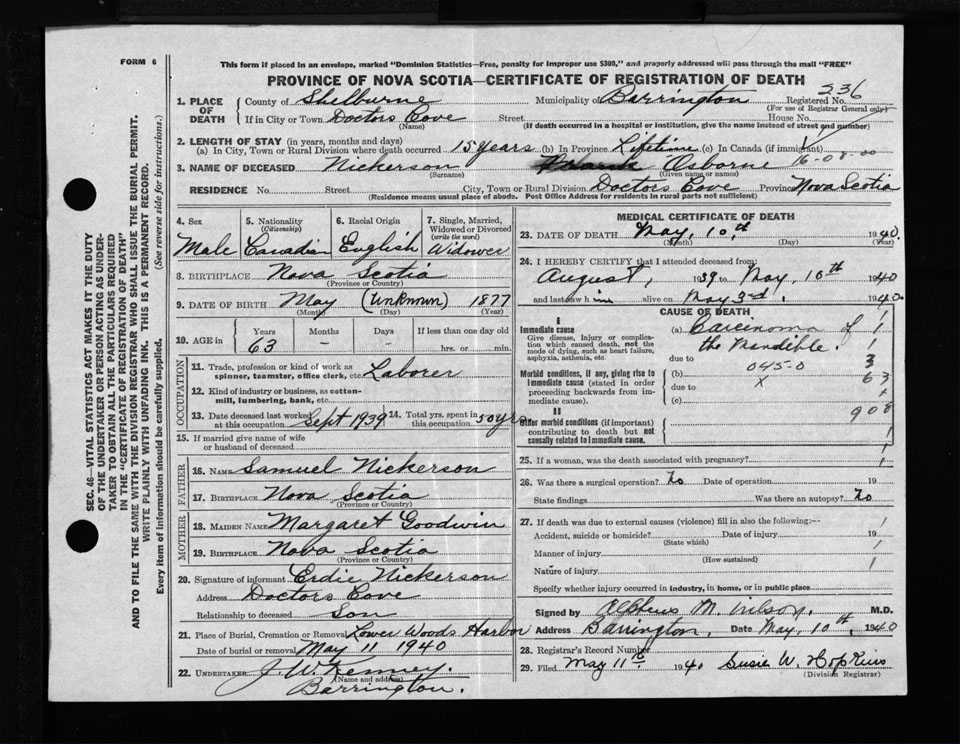 FORM 6
This form if placed in an envelope, marked "Dominion Statistics—Free, penalty for improper use $300," and properly addressed will pass through the mail "FREE"
PROVINCE OF NOVA SCOTIA—CERTIFICATE OF REGISTRATION OF DEATH
236
1. PLACE OF DEATH { County of Shelburne Municipality of Barrington Registered No.
(For use of Registrar General only)
If in City or Town Doctors Cove Street House No.
(Name) (If death occurred in a hospital or institution, give the name instead of street and number)
2. LENGTH OF STAY (in years, months and days)
(a) In City, Town or Rural Division where death occurred 15 years (b) In Province Lifetime (c) In Canada (if immigrant)
3. NAME OF DECEASED Nickerson Osborne 16-08-00
(Surname) (Given name or names)
RESIDENCE No. Street City, Town or Rural Division Doctors Cove Province Nova Scotia
(Residence means usual place of abode. Post Office Address for residents in rural parts not sufficient)
SEC. 46—VITAL STATISTICS ACT MAKES IT THE DUTY
OF THE UNDERTAKER OR PERSON ACTING AS UNDER-
TAKER TO OBTAIN ALL THE PARTICULARS REQUIRED
IN THE "CERTIFICATE OF REGISTRATION OF DEATH"
AND TO FILE THE SAME WITH THE DIVISION REGISTRAR WHO SHALL ISSUE THE BURIAL PERMIT.
WRITE PLAINLY WITH UNFADING INK. THIS IS A PERMANENT RECORD.
Every item of information should be carefully supplied. (See reverse side for instructions.)
4. Sex 5. Nationality 6. Racial Origin 7. Single, Married,
(Citizenship) Widowed or Divorced
(write the word)
Male Canadian English Widower
8. BIRTHPLACE Nova Scotia
(Province or Country)
9. DATE OF BIRTH May (Unknown) 1877
(Month) (Day) (Year)
10. AGE { Years Months Days If less than one day old
63 - - hrs. or min.
OCCUPATION
11. Trade, profession or kind of work as
spinner, teamster, office clerk, etc. Laborer
12. Kind of industry or business, as cotton-
mill, lumbering, bank, etc.
13. Date deceased last worked
at this occupation Sept 1939 14. Total yrs. spent in
this occupation 50 yrs
15. If married give name of wife
or husband of deceased
FATHER
16. NAME Samuel Nickerson
17. BIRTHPLACE Nova Scotia
(Province or Country)
MOTHER
18. MAIDEN NAME Margaret Goodwin
19. BIRTHPLACE Nova Scotia
(Province or Country)
20. Signature of informant Erdie Nickerson
Address Doctors Cove
Relationship to deceased Son
21. Place of Burial, Cremation or Removal Lower Woods Harbor
Date of burial or removal May 11 1940
22. UNDERTAKER J. W. Kenney.
(Name and address)
Barrington.
MEDICAL CERTIFICATE OF DEATH
23. DATE OF DEATH May, 10th 1940.
(Month) (Day) (Year)
24. I HEREBY CERTIFY that I attended deceased from:
August, 1939 to May, 10th 1940
and last saw him alive on May 3rd. 1940.
CAUSE OF DEATH
I
Immediate cause (a) Carcinoma of
Give disease, injury or complica-
tion which caused death, not the the Mandible.
mode of dying, such as heart failure,
asphyxia, asthenia, etc. due to 045-0 3
Morbid conditions, if any, giving rise to (b) x 63
immediate cause (stated in order due to
proceeding backwards from im-
mediate cause). (c)
II 908
Other morbid conditions (if important)
contributing to death but not
causally related to immediate cause.
25. If a woman, was the death associated with pregnancy?
26. Was there a surgical operation? No Date of operation 19
State findings Was there an autopsy? No
27. If death was due to external causes (violence) fill in also the following:—
Accident, suicide or homicide? Date of injury 19
(State which)
Manner of injury
(How sustained)
Nature of injury
Specify whether injury occurred in industry, in home, or in public place
Signed by Alpheus M. Wilson, M.D.
Address Barrington, Date May, 10th, 1940
28. Registrar's Record Number
29. Filed May 11th 1940 Susie W. Hopkins
(Division Registrar)